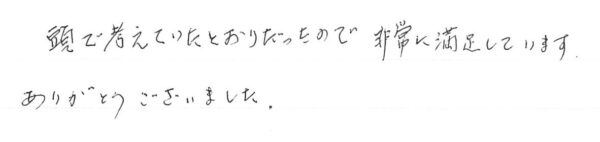 頭で考えていたとおりだったので 非常に満足しています.
ありがとう ございました.